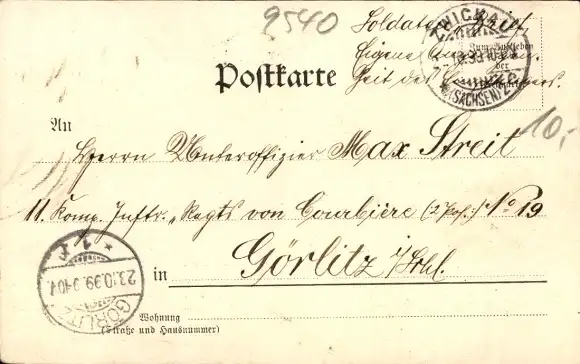 9540
Soldaten Brief.
Eigene Angelegen.
heit des Empfängers.
ZWICKAU
(SACHSEN)
Zum Aufkleben
der
Postkarte
10,-
An
Herrn Unteroffizier Max Streit
11. Komp. Inftr. „Regts von Courbière (2 Pos.) No 19
in Görlitz i/Schl.
* 1 r
23.10.99. 9-10 V.
GÖRLITZ
Wohnung
(Straße und Hausnummer)